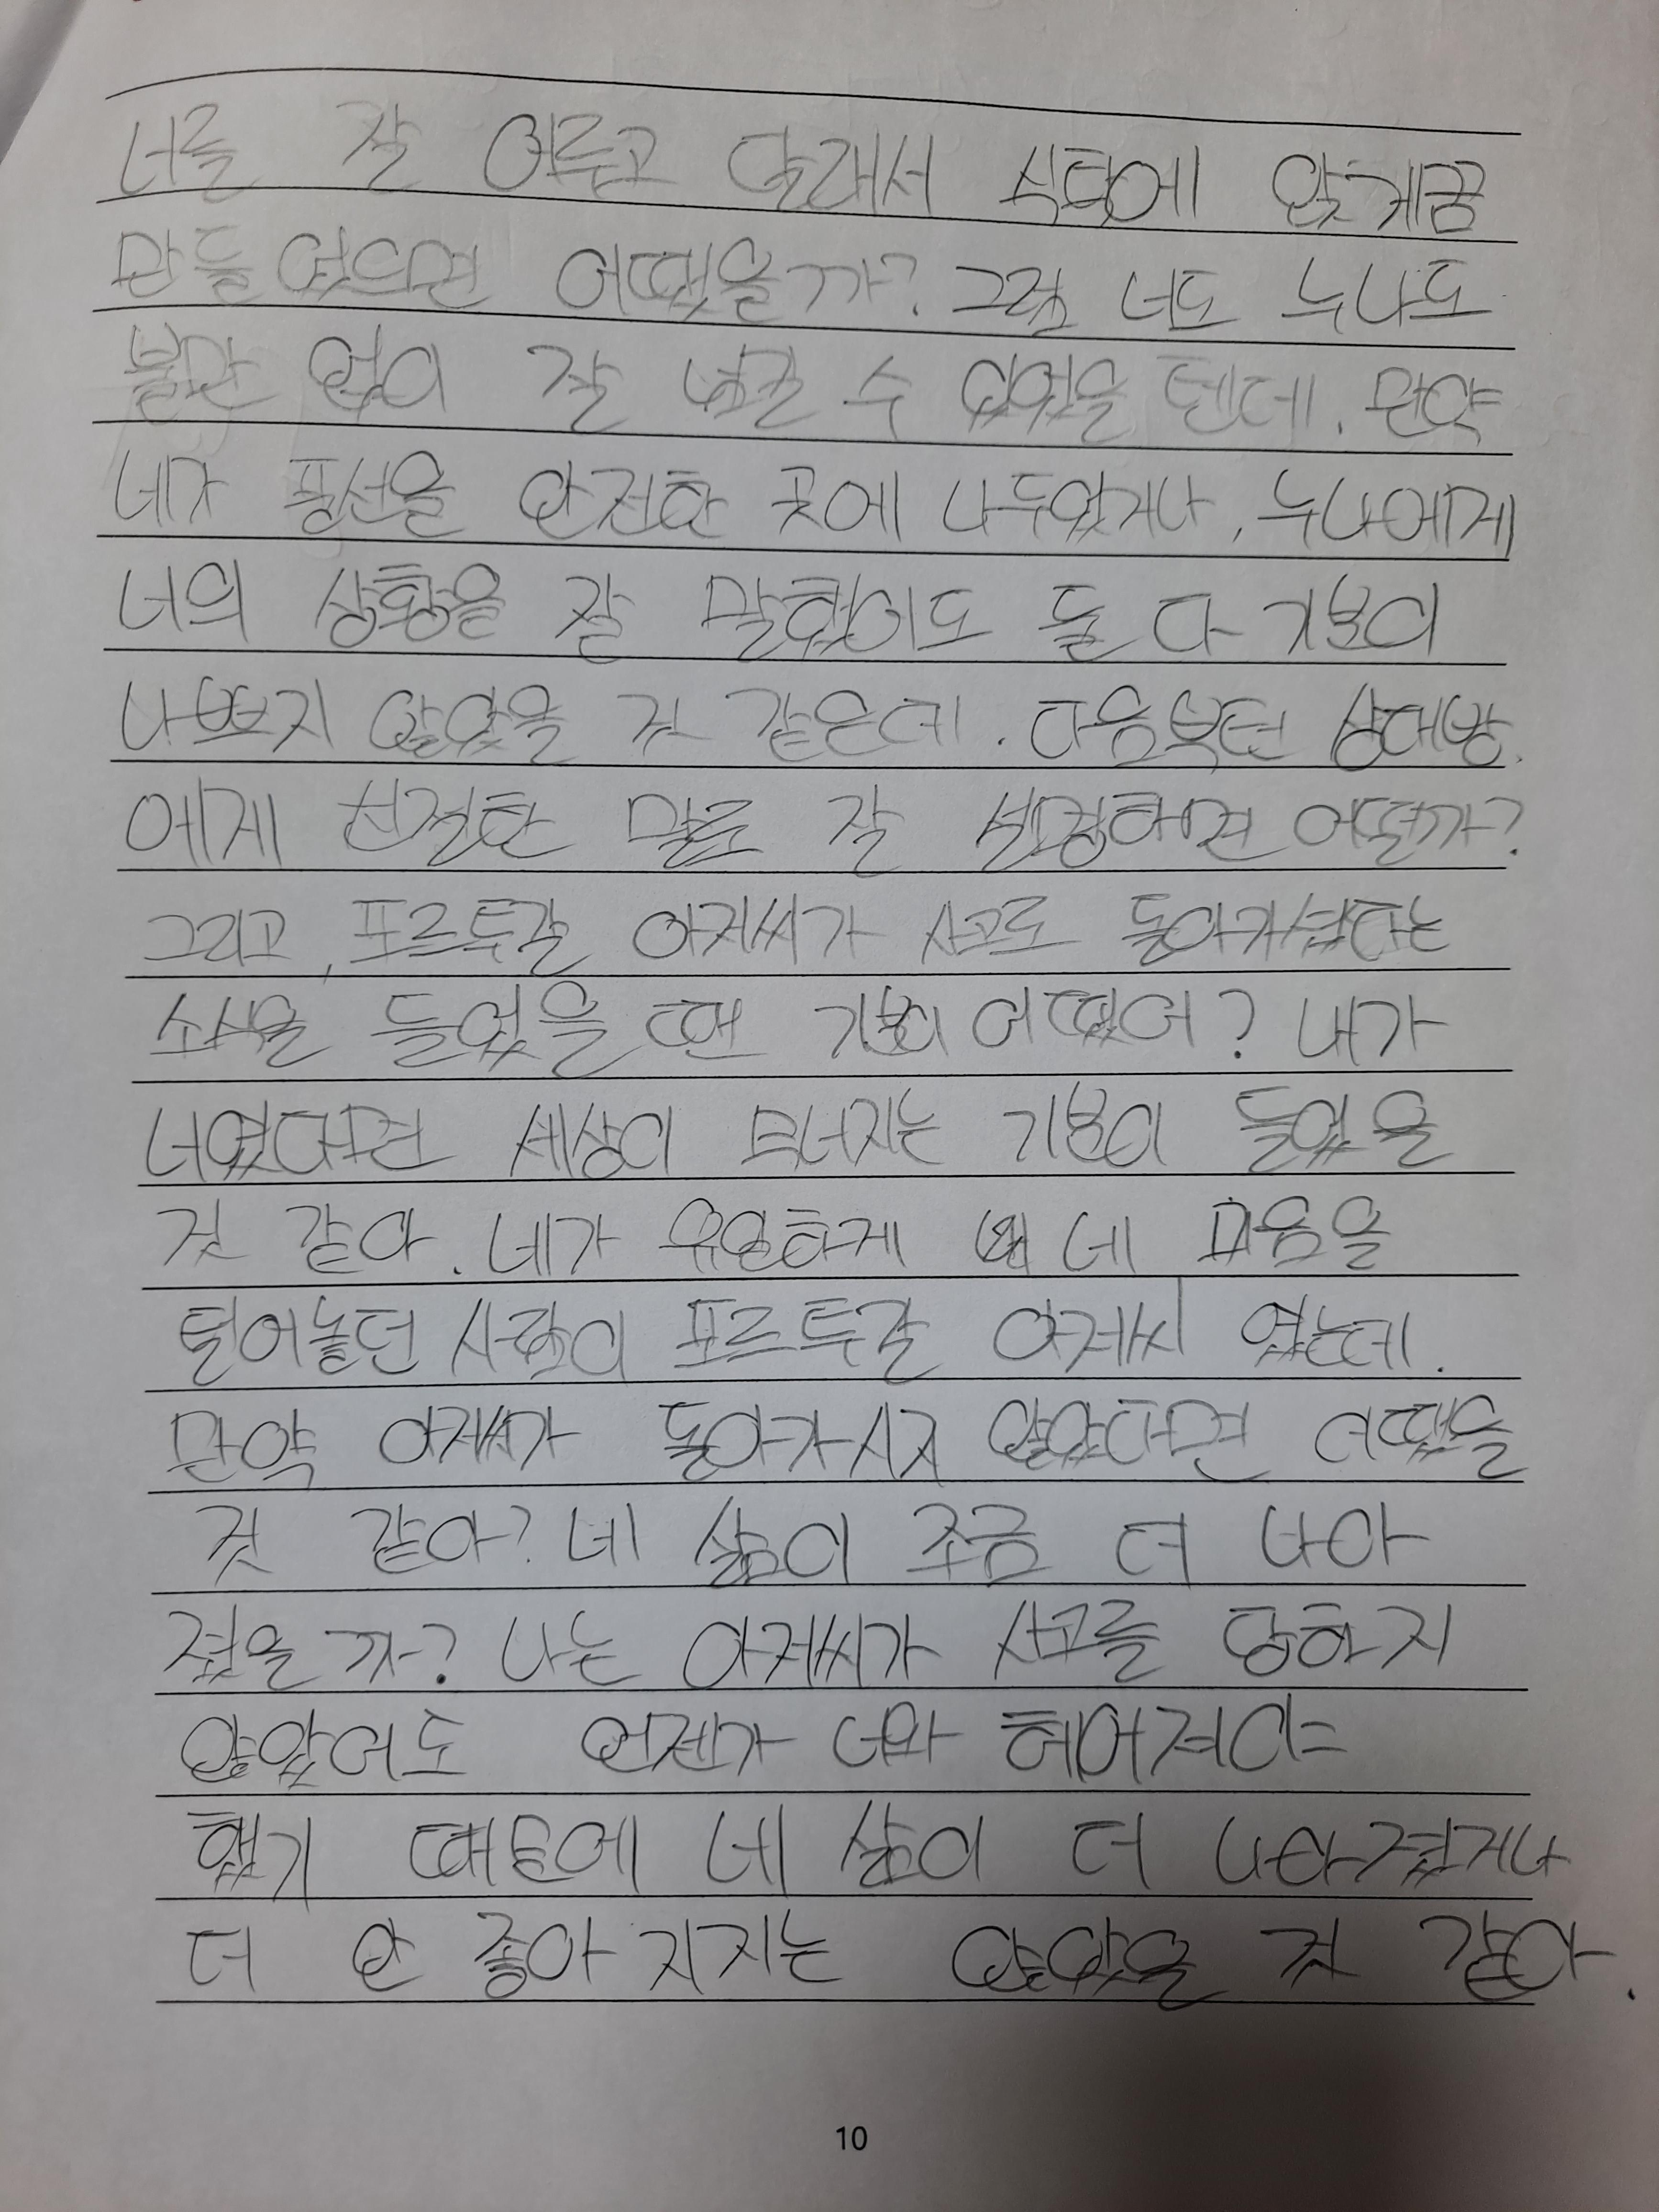 너를 잘 어루고 달래서 식탁에 앉게끔
만들었으면 어땠을까? 그럼 너도 누나도
불만 없이 잘 넘길 수 있었을 텐데. 만약
네가 풍선을 안전한 곳에 나두었거나, 누나에게
너의 상황을 잘 말했어도 둘 다 기분이
나쁘지 않았을 것 같은데. 다음부턴 상대방
에게 친절한 말로 잘 설명하면 어떨까?
그리고, 포르투갈 아저씨가 사고로 돌아가셨다는
소식을 들었을 땐 기분이 어땠어? 내가
너였다면 세상이 무너지는 기분이 들었을
것 같아. 네가 유일하게 네 마음을
털어놓던 사람이 포르투갈 아저씨 였는데.
만약 아저씨가 돌아가시지 않았다면 더땠을
것 같아? 네 삶이 조금 더 나아
졌을까? 나는 아저씨가 사고를 당하지
않았어도 언젠가 너와 헤어져야
했기 때문에 네 삶이 더 나아졌거나
더 안 좋아지지는 않았을 것 같아.
10